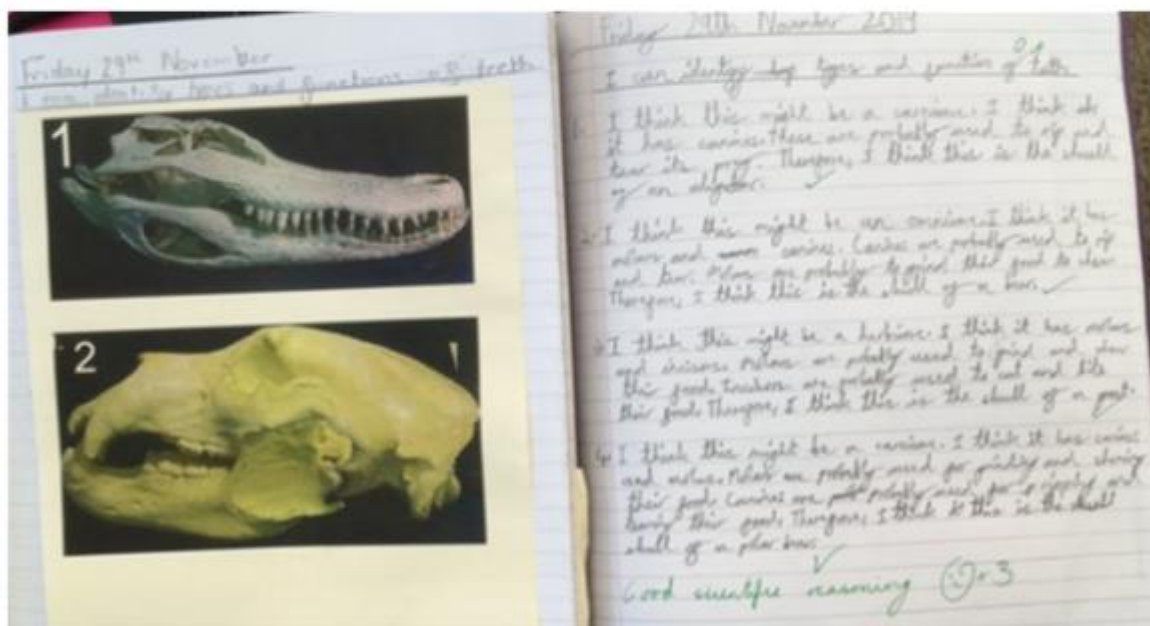 Friday 29th November
I can identify types and functions of teeth
1
2
Friday 29th November 2019
I can identify types and function of teeth
I think this might be a carnivore. I think
it has canines. These are probably used to rip and
tear its prey. Therefore, I think this is the skull
of an aligator.
I think this might be an omnivore. I think it has
molars and canines. Canines are probably used to rip
and tear. Molars are probably to grind their food to chew.
Therefore, I think this is the skull of a bear.
I think this might be a herbivore. I think it has molars
and incisors. Molars are probably used to grind and chew
their food. Incisors are probably used to cut and bite
their food. Therefore, I think this is the skull of a
4. I think this might be a carnivore. I think it has canines
and molars. Molars are probably used for grinding and chewing
their food. Canines are probably used for ripping and
tearing their food. Therefore, I think this is the
skull of a polar bear.
Good scientific reasoning